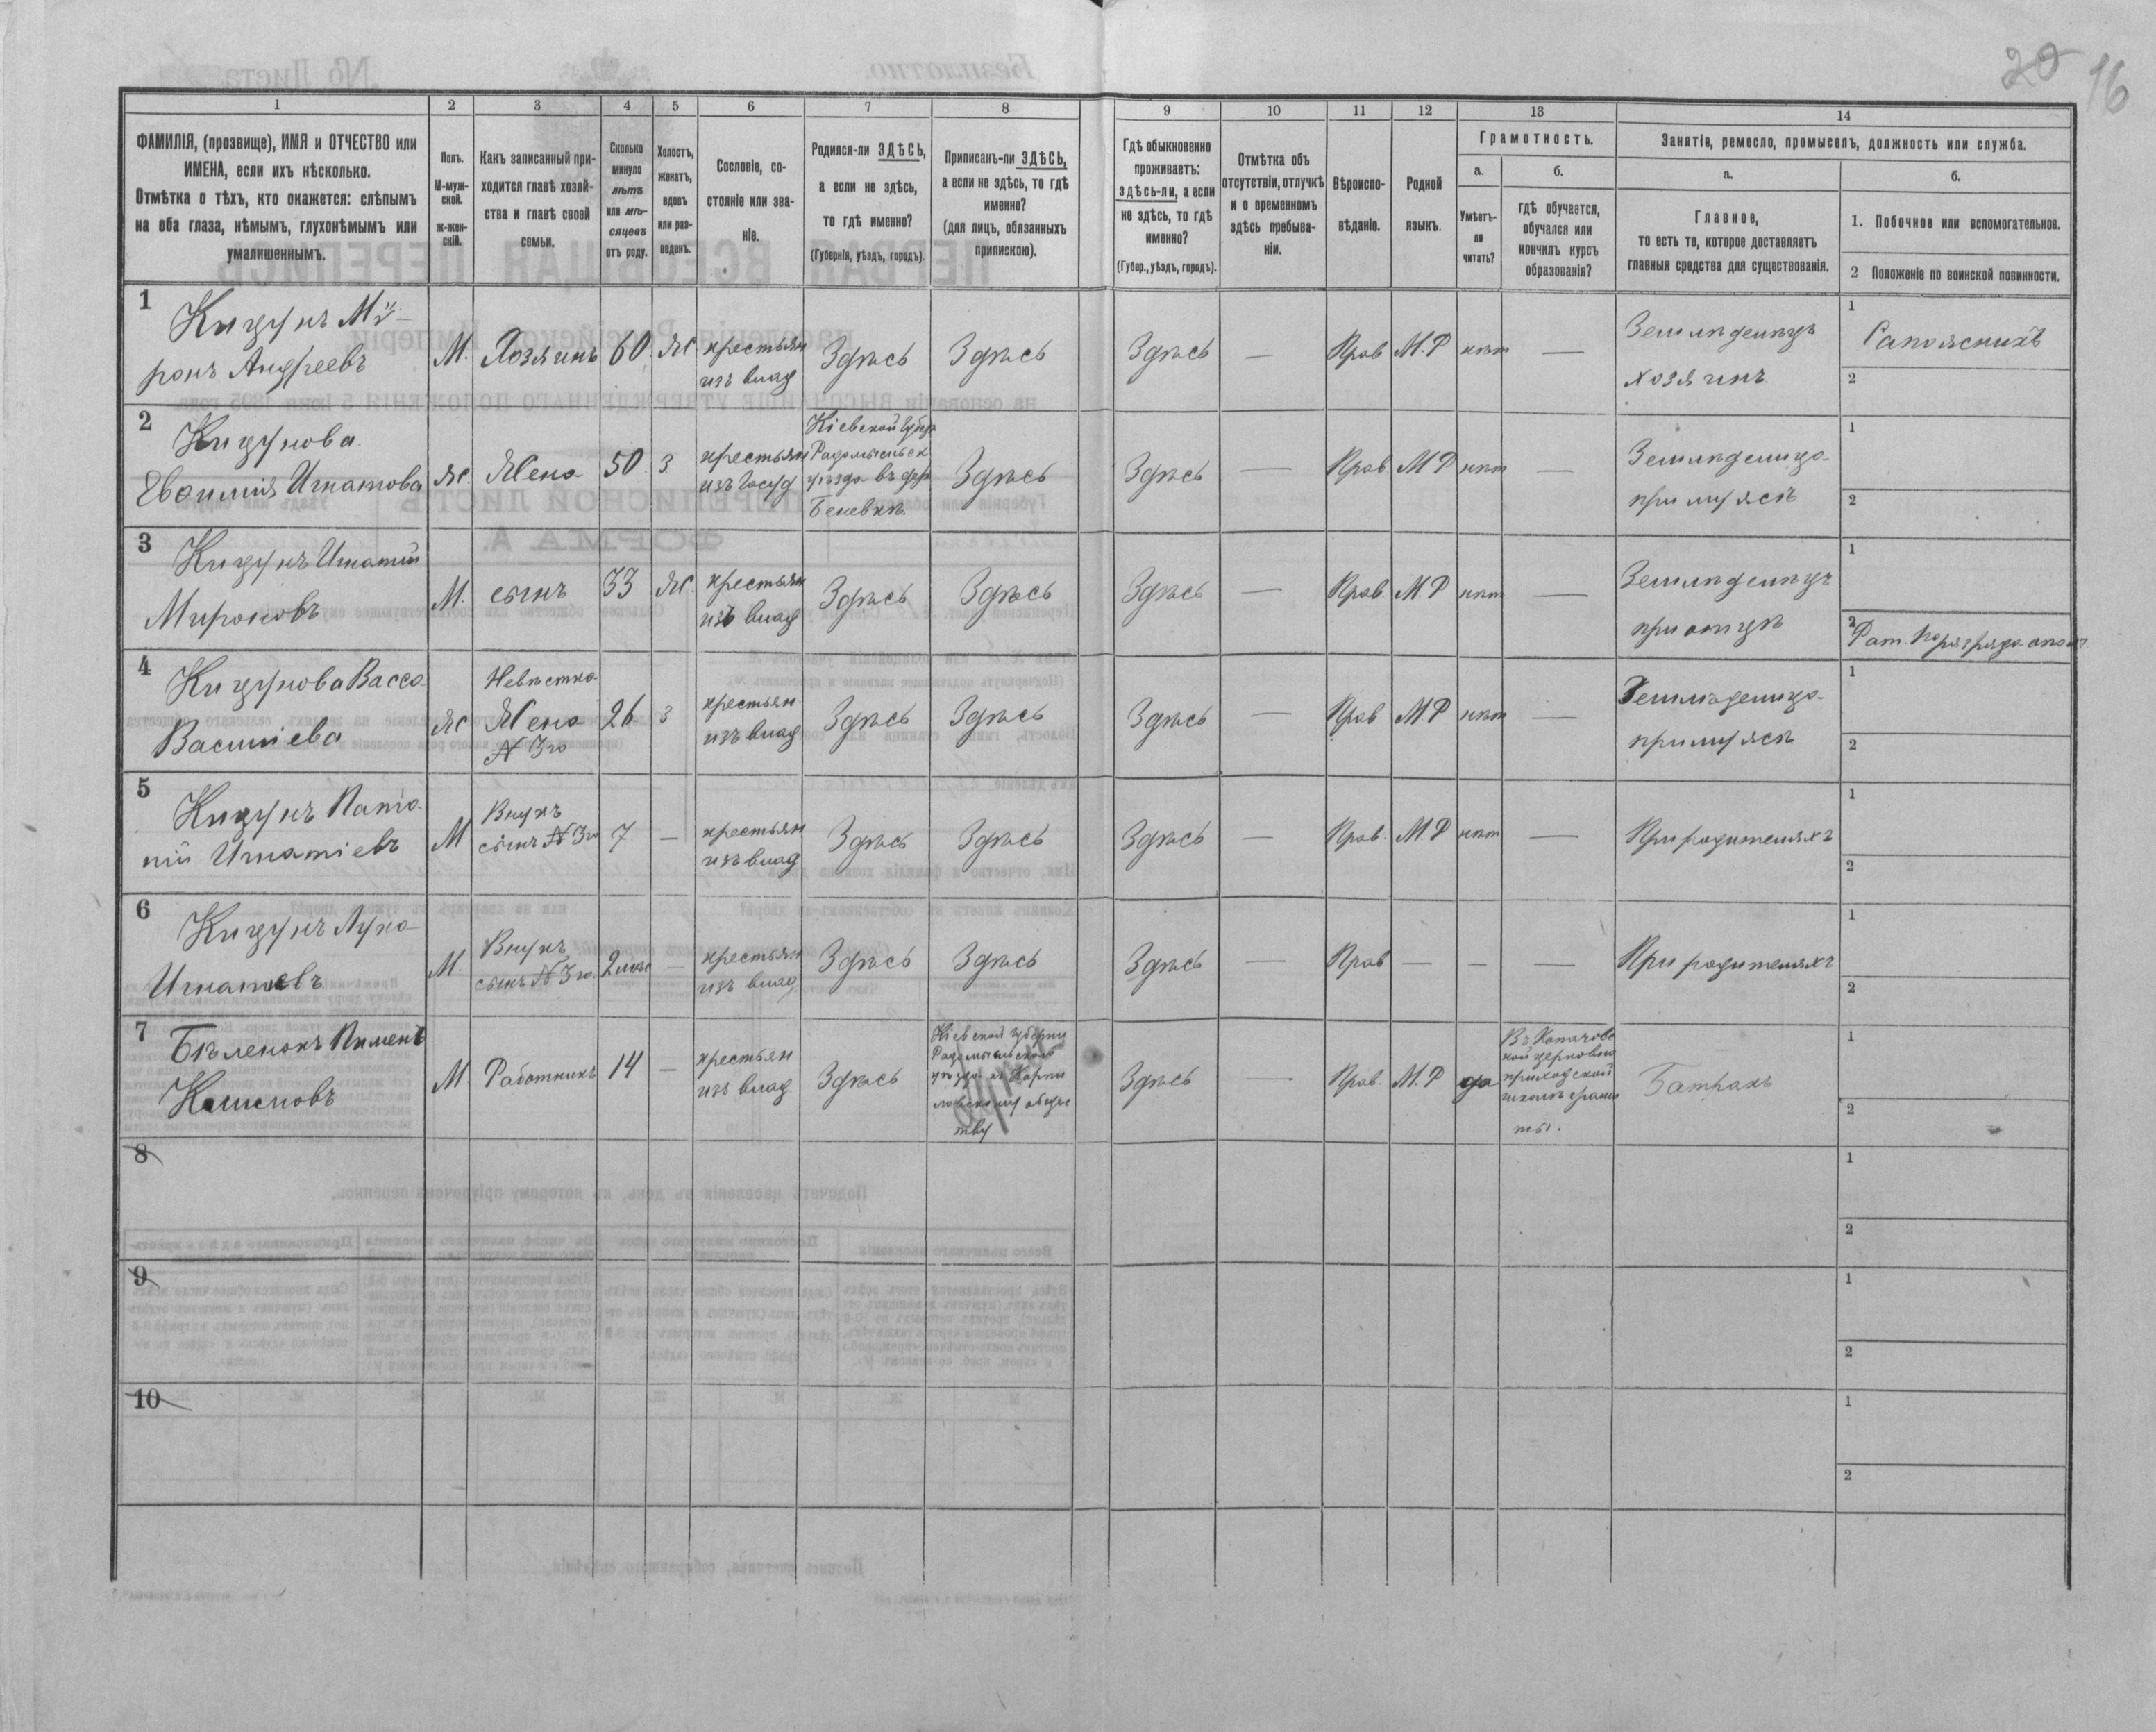 20 16
1 2 3 4 5 6 7 8 9 10 11 12 13 14
ФАМИЛІЯ, (прозвище), ИМЯ и ОТЧЕСТВО или
ИМЕНА, если ихъ нѣсколько.
Отмѣтка о тѣхъ, кто окажется: слѣпымъ
на оба глаза, нѣмымъ, глухонѣмымъ или
умалишеннымъ.
Полъ.
М-муж-
ской.
ж-жен-
скій.
Какъ записанный при-
ходится главѣ хозяй-
ства и главѣ своей
семьи.
Сколько
минуло
лѣтъ
или мѣ-
сяцевъ
отъ роду.
Холостъ,
женатъ,
вдовъ
или раз-
веденъ.
Сословіе, со-
стояніе или зва-
ніе.
Родился-ли ЗДѢСЬ,
а если не здѣсь,
то гдѣ именно?
(Губернія, уѣздъ, городъ).
Приписанъ-ли ЗДѢСЬ,
а если не здѣсь, то гдѣ
именно?
(для лицъ, обязанныхъ
припискою).
Гдѣ обыкновенно
проживаетъ:
здѣсь-ли, а если
не здѣсь, то гдѣ
именно?
(Губер., уѣздъ, городъ).
Отмѣтка объ
отсутствіи, отлучкѣ
и о временномъ
здѣсь пребыва-
ніи.
Вѣроиспо-
вѣданіе.
Родной
языкъ.
Грамотность.
а.
Умѣетъ-
ли
читать?
б.
гдѣ обучается,
обучался или
кончилъ курсъ
образованія?
Занятіе, ремесло, промыселъ, должность или служба.
а.
Главное,
то есть то, которое доставляетъ
главныя средства для существованія.
б.
1. Побочное или вспомогательное.
2 Положеніе по воинской повинности.
1
Кицунъ Ми-
ронъ Андреевъ
М. Хозяинъ 60 Ж
крестьян
изъ влад
Здѣсь Здѣсь Здѣсь — Прав М.Р нѣт —
Земледелецъ
хозяинъ
1 Сапожникъ
2
2
Кицунова
Евфимия Игнатова
Ж. Жена 50 З
крестьян
изъ Госуд
Кіевской губер
Радомысльск
уѣзда въ дер
Белевкѣ
Здѣсь Здѣсь — Прав. М Р нѣт —
Земледелица
при мужѣ
1
2
3
Кицунъ Игнатий
Мироновъ
М. сынъ 33 Ж.
крестьян
изъ влад
Здѣсь Здѣсь Здѣсь — Прав. М.Р нѣт —
Земледелецъ
при отцѣ
1
2 Рат. 1го разряда
4
Кицунова Васса
Василиева
Ж
Невѣстка
Жена
N 3го
26 З
крестьян
изъ влад
Здѣсь Здѣсь Здѣсь — Прав М.Р нѣт —
Земледелица
при мужѣ
1
2
5
Кицунъ
Игнатіевъ
М
Внукъ
сынъ N 3го
7 —
крестьян
изъ влад
Здѣсь Здѣсь Здѣсь — Прав. М.Р нѣт —
При родителяхъ
1
2
6
Кицунъ Лука
Игнатіевъ
М.
Внукъ
сынъ N 3го
2 мѣс —
крестьян
изъ влад
Здѣсь Здѣсь Здѣсь — Прав — — —
При родителяхъ
1
2
7
Бѣленокъ Пименъ
М. Работникъ 14 —
крестьян
изъ влад
Здѣсь
Кіевской губерни
Радомысльскаго
уѣзда къ Карпи
ловскому общес
тву
Здѣсь — Прав. М.Р да
В Копачовс
кой церковно
приходской
школѣ грамо
ты.
Батракъ
1
2
8
1
2
9
1
2
10
1
2